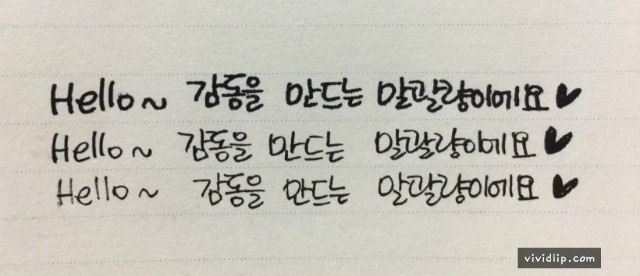 Hello~ 감동을 만드는 말괄량이에요♥
Hello~ 감동을 만드는 말괄량이에요♥
Hello~ 감동을 만드는 말괄량이에요♥
vividlip.com